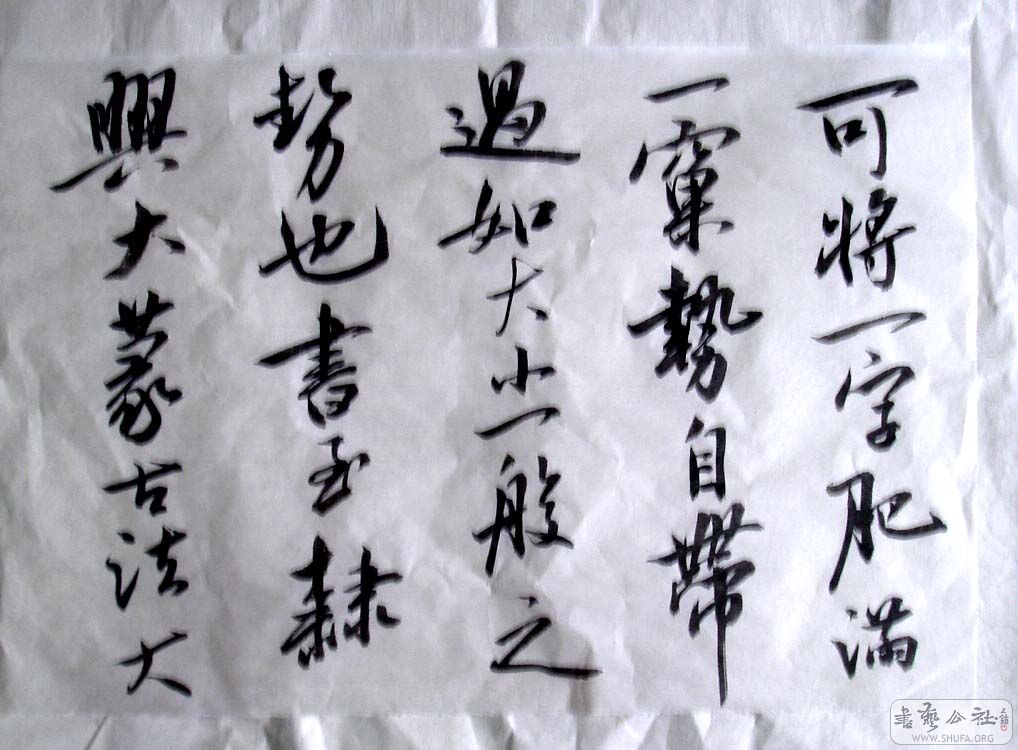 可將一字肥滿
一窠勢自帶
過如大小一般之
勢也書至隸
興大篆古法大
書藝公社
WWW.SHUFA.ORG